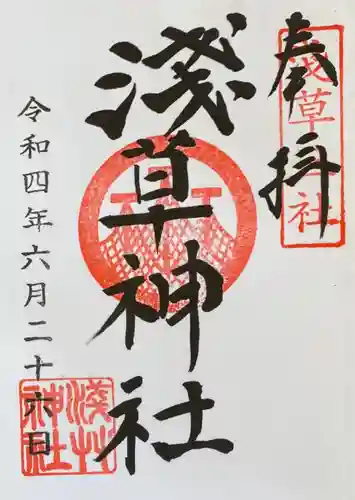 奉拝
淺草神社
淺草神社
令和四年六月二十六日
淺草神社